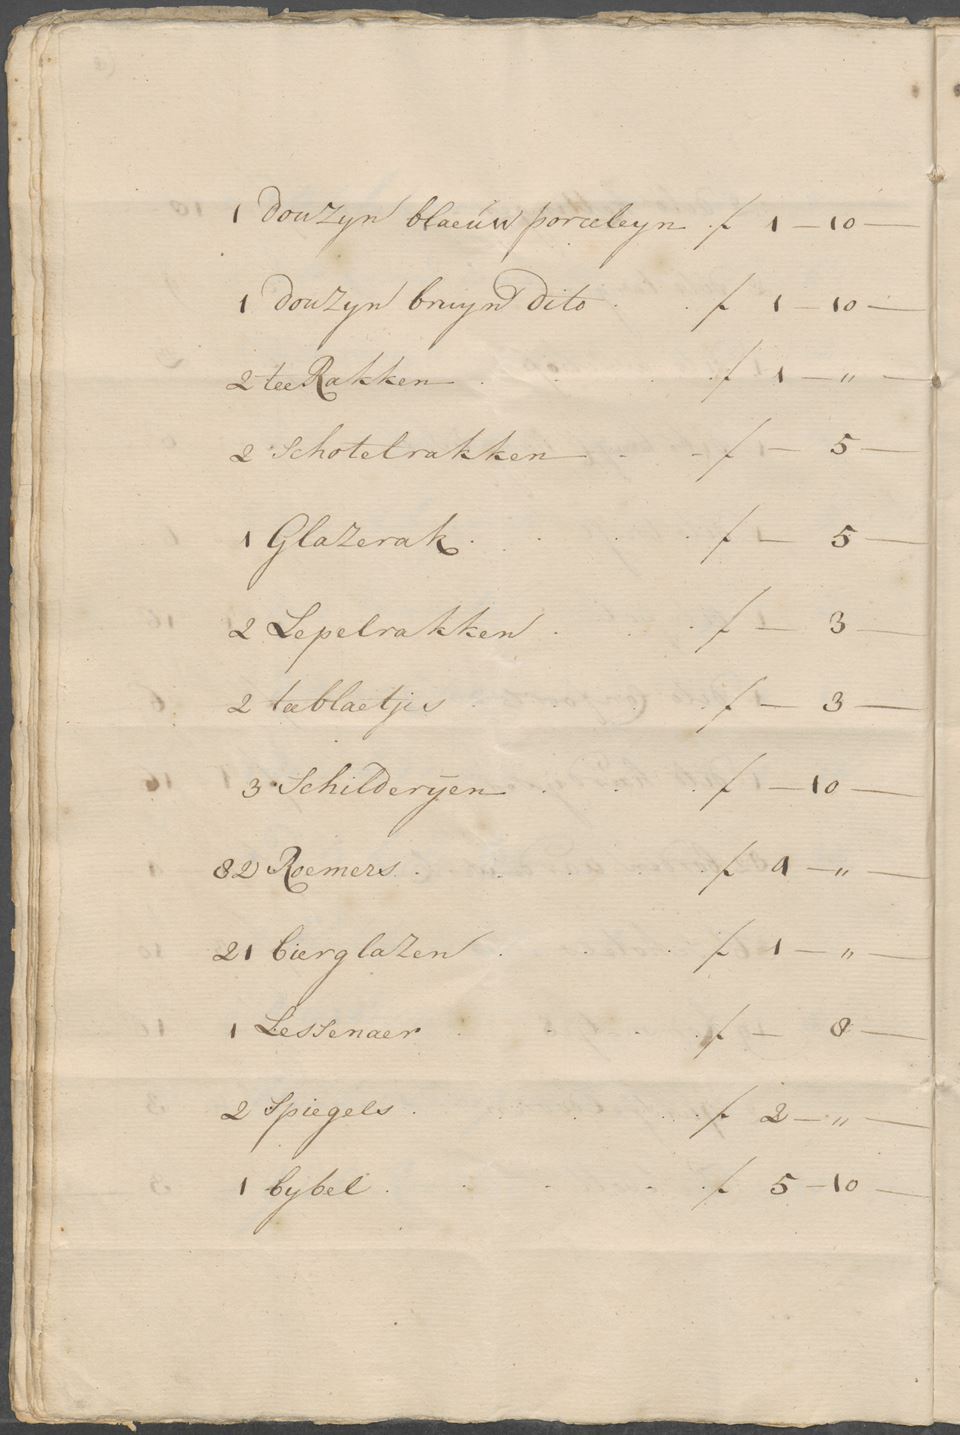 1 douzyn blaeuw porceleyn f 1 — 10 —
1 douzyn bruyn dito . . f 1 — 10 —
2 tee Rakken . . . . f 1 — „ —
2 Schotelrakken . - f — 5 —
1 Glazerak . . . . f — 5 —
2 Lepelrakken . . . f — 3 —
2 teeblaetjes . . . f — 3 —
3 Schilderyen . . . f — 10 —
82 Roemers . . . f 4 — „ —
21 bierglazen . . . f 1 — „ —
1 Lessenaer . . . f — 8 —
2 Spiegels . . . f 2 — „ —
1 bybel . . . . f 5 — 10 —